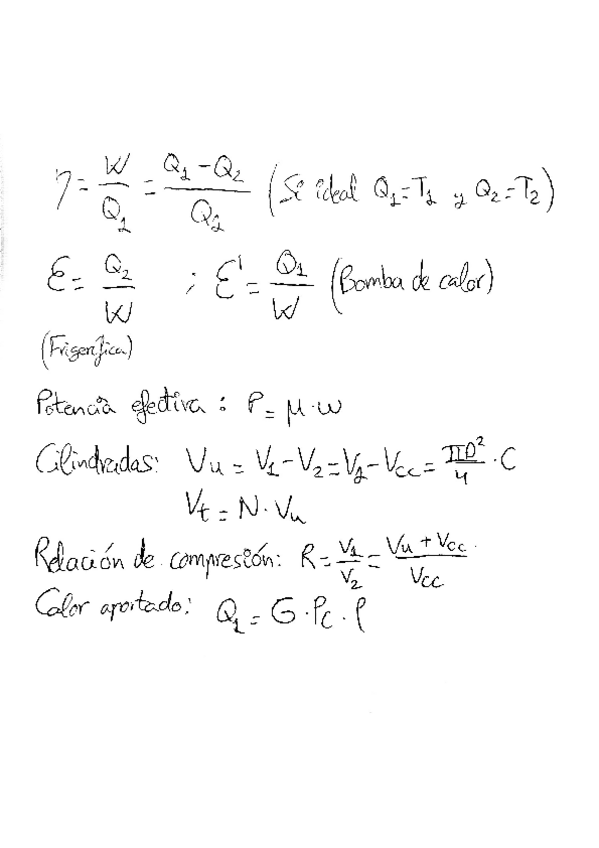 η = W/Q₁ = (Q₁ - Q₂)/Q₁ (Si ideal Q₁=T₁ y Q₂=T₂)
ε = Q₂/W ; ε' = Q₁/W (Bomba de calor)
(Frigerífica)
Potencia efectiva : P = μ·w
Cilindradas: Vu = V₁-V₂ = V₁-Vcc = πD²/4 · C
Vt = N·Vu
Relación de compresión: R = V₁/V₂ = (Vu + Vcc)/Vcc
Calor aportado: Q₁ = G·Pc·ρ